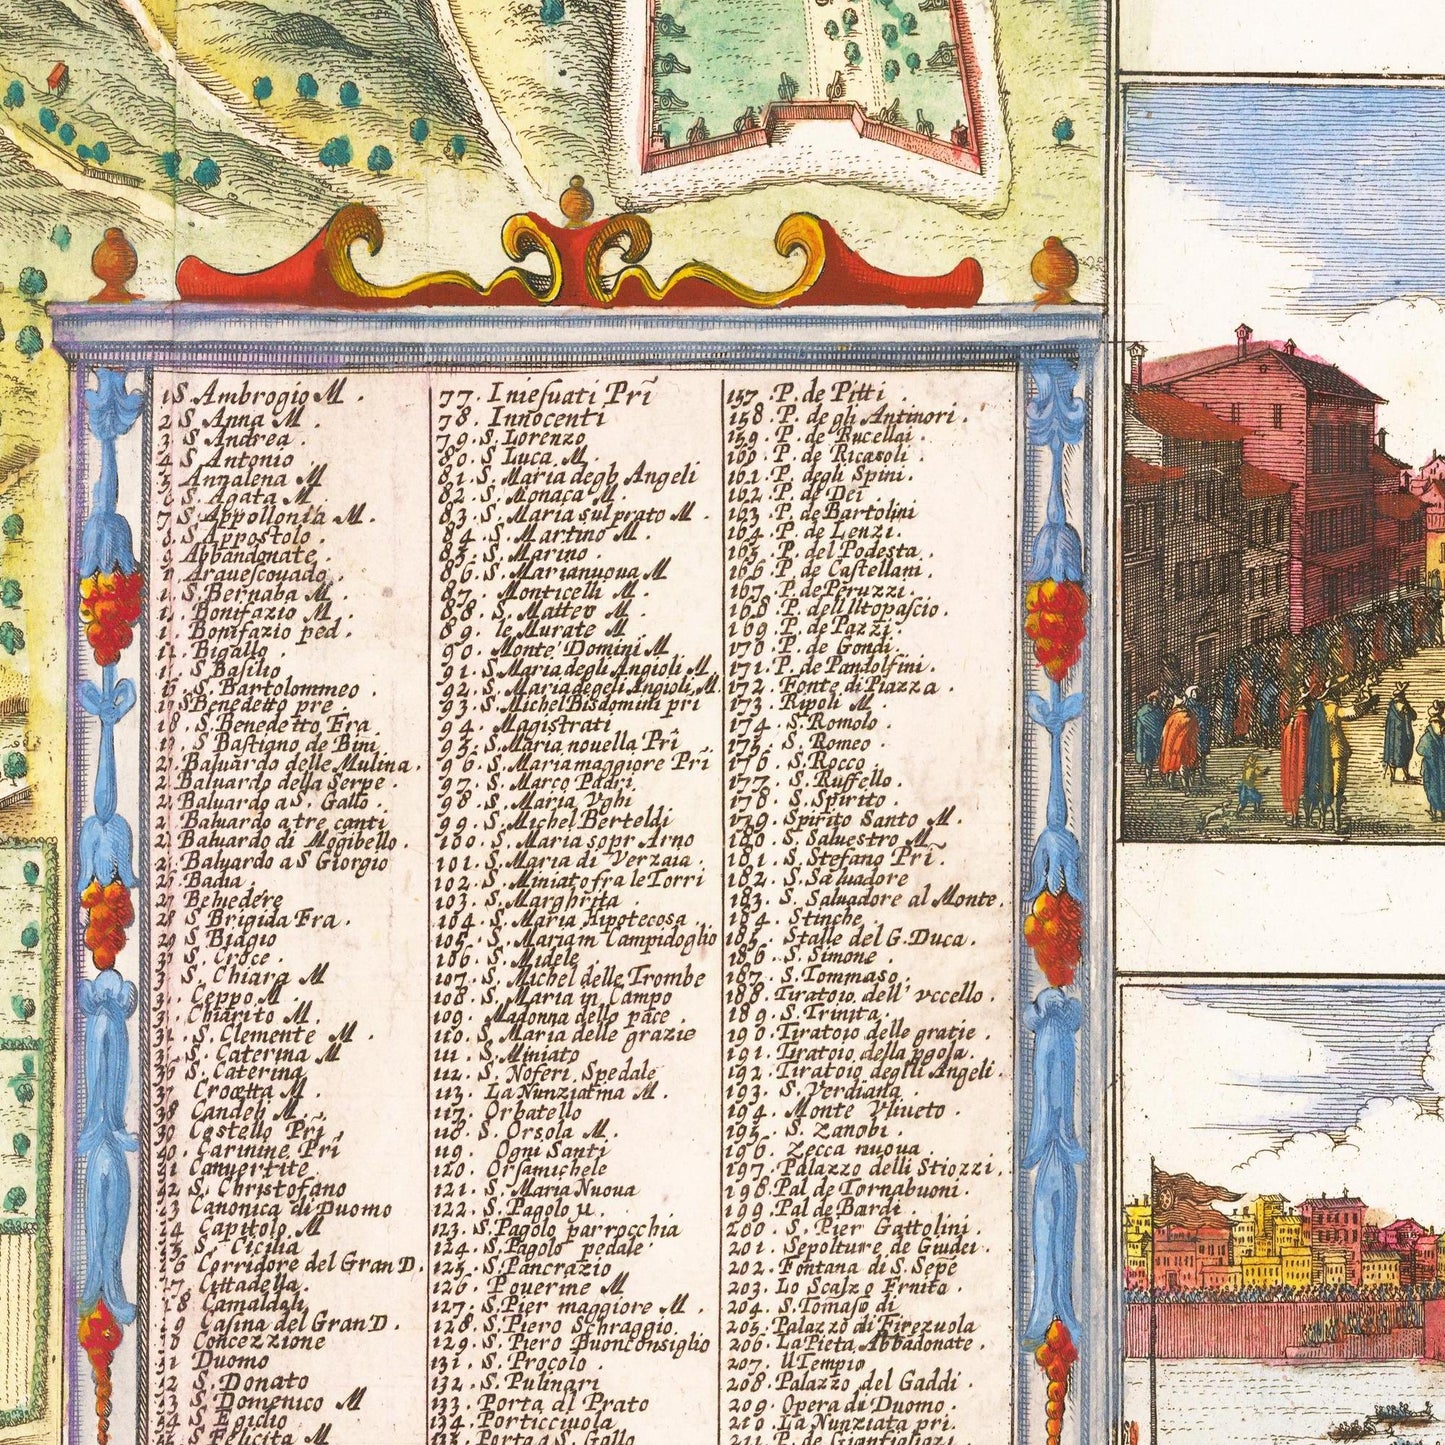 1 S. Ambrogio M .
2 S. Anna M .
3 S. Andrea .
4 S. Antonio .
5 Annalena M
6 S. Agata M .
7 S. Appollonia M .
8 S. Appostolo .
9 Abbandonate .
Arauescouado .
S. Bernaba M .
Bonifazio M .
Bonifazio ped .
Bigallo .
S Basilio
S. Bartolommeo .
17 S Benedetto pre .
18 . S. Benedetto Fra
S Bastigno de Bini
Baluardo delle Mulina .
Baluardo della Serpe .
Baluardo a S. Gallo .
Baluardo a tre canti
Baluardo di Mogibello .
Baluardo a S Giorgio
Badia
27 Beluedere
28 S Brigida Fra .
29 S Biagio
S. Croce .
S. Chiara M
Ceppo M .
Chiarito M .
S. Clemente M .
S. Caterina M
36 S. Caterina
37 Crocetta M .
38 Candeli M .
39 Castello Pri
40 . Carmine Pri
Conuertite .
S. Christofano
Canonica di Duomo
Capitolo M
S. Cicilia
Corridore del Gran D .
Cittadella .
Camaldali
Casina del Gran D .
Concezzione
Duomo
S. Donato
S Domenico M
S Egidio
S Felicita M
77. Iniesuati Pri
78. Innocenti
79. S. Lorenzo
80. S. Luca M .
81. S. Maria degh Angeli
82. S. Monaca M .
83. S. Maria sul prato M .
84. S. Martino M .
85. S. Marino .
86. S. Marianuoua M
87. Monticelli M .
88. S. Matteo M .
89. le Murate M
90. Monte Domini M
91. S. Maria degli Angioli M .
92. S. Maria degeli Angioli M
93. S. Michel Bisdomini pri
94. Magistrati
95. S. Maria nouella Pri
96. S. Maria maggiore Pri
97. S. Marco Padri
98. S. Maria Vghi
99. S. Michel Berteldi
100. S. Maria sopr Arno
101. S. Maria di Verzaia .
102. S. Miniato fra le Torri
103. S. Marghrita .
104. S. Maria Hipotecosa .
105. S. Mariam Campidoglio
106. S. Midele .
107. S. Michel delle Trombe
108. S. Maria in Campo
109. Madonna dello pace .
110. S. Maria delle grazie
111. S. Miniato
112. S. Noferi Spedale
113. La Nunziatina M .
117. Orbatello
118. S. Orsola M .
119. Ogni Santi
120. Orsamichele
121. S. Maria Nuoua
122. S. Pagolo M .
123. S. Pagolo parrocchia
124. S. Pagolo pedale
125. S. Pancrazio
126. Pouerine M
127. S. Pier maggiore M .
128. S. Piero Schraggio .
129. S. Piero Buonconsiglio
131. S. Procolo .
132. S. Pulinari
133. Porta al Prato
134. Porticciuola
135. Porta a S. Gallo
157. P. de Pitti .
158. P. de gh Antinori .
159. P. de Bucellai .
160. P. de Ricasoli .
161. P. degli Spini .
162. P. de Dei .
163. P. de Bartolini
164. P. de Lenzi .
165. P. del Podesta .
166. P. de Castellani .
167. P. de Peruzzi .
168. P. dell'Iltopascio .
169. P. de Pazzi .
170. P. de Gondi .
171. P. de Pandolfini .
172. Fonte di Piazza .
173. Ripoli M .
174. S. Romolo .
175. S. Romeo .
176. S. Rocco .
177. S. Ruffello .
178. S. Spirito .
179. Spirito Santo M .
180. S. Saluestro M .
181. S. Stefano Pri .
182. S. Saluadore
183. S. Saluadore al Monte .
184. Stinche .
185. Stalle del G. Duca .
186. S. Simone .
187. S. Tommaso .
188. Tiratoio dell' vccello .
189. S. Trinita .
190. Tiratoio delle gratie .
191. Tiratoio della pgola .
192. Tiratoio degli Angeli .
193. S. Verdiana .
194. Monte Vliueto .
195. S. Zanobi .
196. Zecca nuoua
197. Palazzo delli Stiozzi .
198. Pal de Tornabuoni .
199. Pal de Bardi .
200. S. Pier Gattolini .
201. Sepolture de Giudei .
202. Fontana di S. Sepe
203. Lo Scalzo Ernito .
204. S. Tomaso di
205. Palazzo di Firezuola
206. La Pieta Abbadonate .
207. Il Tempio
208. Palazzo del Gaddi .
209. Opera du Duomo .
210. La Nunziata pri .
211. P. de Gianfigliazi .